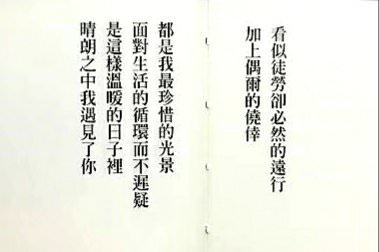 看似徒勞卻必然的遠行
加上偶爾的僥倖
都是我最珍惜的光景
面對生活的循環而不遲疑
是這樣溫暖的日子裡
晴朗之中我遇見了你